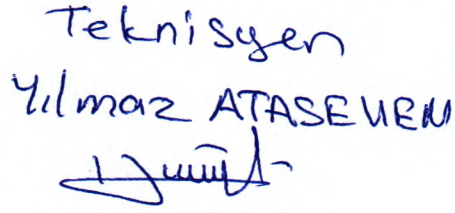 Teknisyen
Yılmaz ATASEVEN